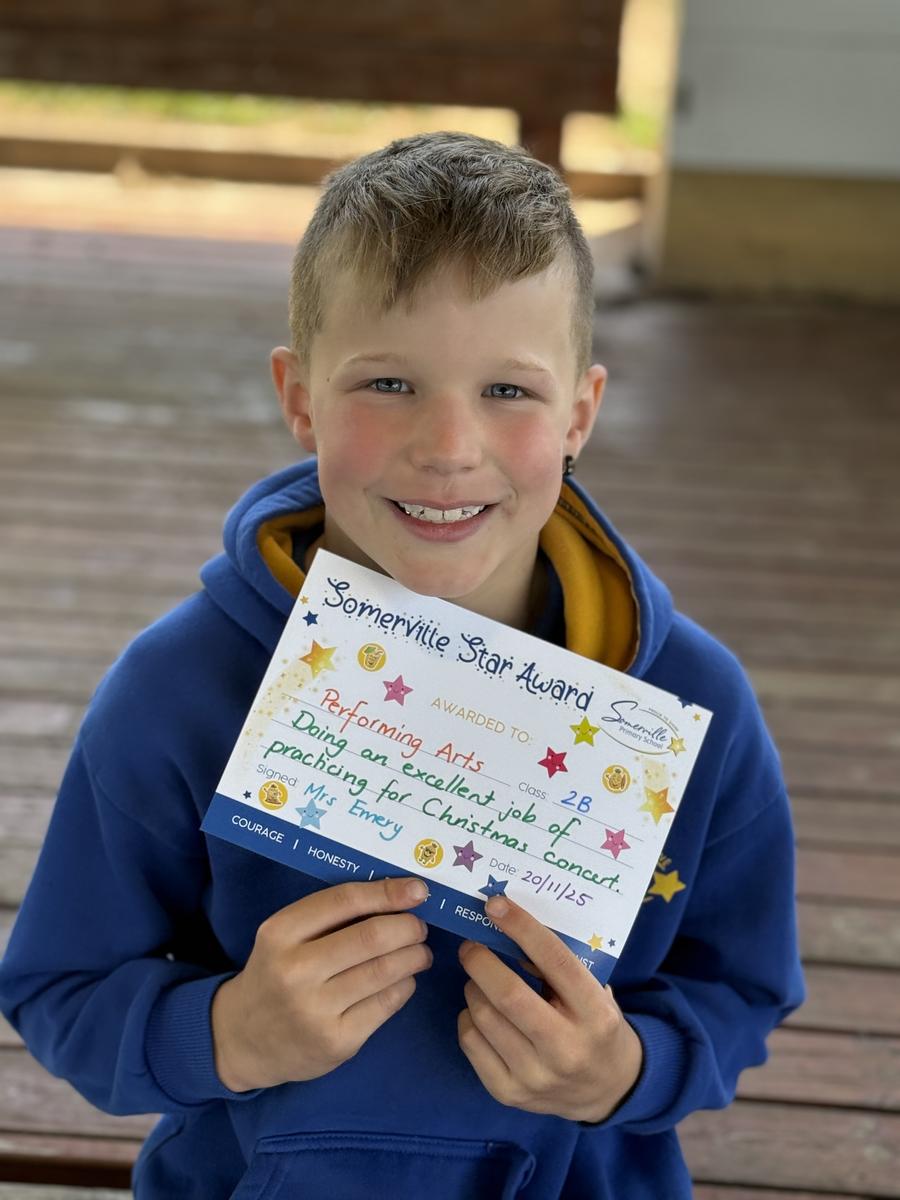 Somerville Star Award
AWARDED TO:
Somerville
Primary School
Performing Arts
Class: 2B
Doing an excellent job of
practicing for Christmas concert.
Signed: Mrs Emery
Date: 20/11/25
COURAGE | HONESTY |
| RESPON